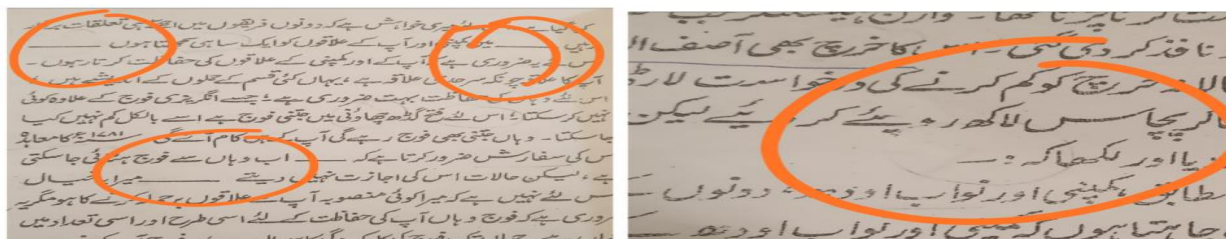 کیا گیا ہے میری خواہش ہے کہ دونوں فریقوں میں اچھے ہی تعلقات
میں کمپنی اور آپ کے علاقوں کو ایک سا ہی سمجھتا ہوں
یہ ضروری ہے کہ آپ کے اور کمپنی کے علاقوں کی حفاظت کرتا رہوں ۔
آپ کا علاقہ چونکہ سرحدی علاقہ ہے ، یہاں کئی قسم کے حملوں کے اندیشے ہیں ،
اس لئے وہاں کی حفاظت بہت ضروری ہے ، جسے انگریزی فوج کے علاوہ کوئی
نہیں کر سکتا ، اس لئے فتح گڈھ چھاؤنی میں جتنی فوج ہے اسے بالکل کم نہیں کیا
جا سکتا ۔ وہاں جتنی بھی فوج رہے گی آپ کے ہی کام آئے گی ۱۷۸۱ء کا معاہدہ
اس کی سفارش ضرور کرتا ہے کہ ـــ اب وہاں سے فوج ہٹائی جا سکتی
ہے ، لیکن حالات اس کی اجازت نہیں دیتے ـــ میرا خیال
اس لئے نہیں ہے کہ میرا کوئی منصوبہ آپ کے علاقوں پر حملہ کرنے کا ہو مگر یہ
ضروری ہے کہ فوج وہاں آپ کی حفاظت کے لئے اسی طرح اور اسی تعداد میں
نافذ کر دی گئی ۔ اس کا خرچ بھی آصف
خرچ کو کم کرنے کی درخواست لارڈ
کر پچاس لاکھ روپئے کر دیئے لیکن
دیا اور لکھا کہ :۔
مطابق کمپنی اور نواب اودھ ، دونوں
چاہتا ہوں کہ کمپنی اور نواب اودھ